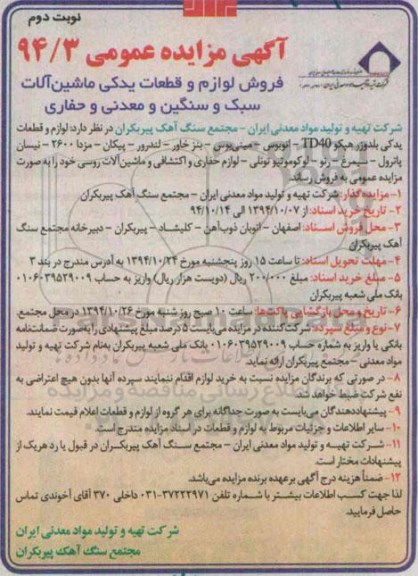 نوبت دوم
آگهی مزایده عمومی ۹۴/۳
فروش لوازم و قطعات یدکی ماشین‌آلات
سبک و سنگین و معدنی و حفاری
شرکت تهیه و تولید مواد معدنی ایران - مجتمع سنگ آهک پیربکران در نظر دارد: لوازم و قطعات
یدکی بلدوزر هپکو TD40 - اتوبوس - مینی‌بوس - بنز خاور - لندرور - پیکان - مزدا ۲۶۰۰ - نیسان
پاترول - سیمرغ - رنو - لوکوموتیو تونلی - لوازم حفاری و اکتشافی و ماشین‌آلات روسی خود را به صورت
مزایده عمومی به فروش رساند.
۱- مزایده‌گذار: شرکت تهیه و تولید مواد معدنی ایران - مجتمع سنگ آهک پیربکران
۲- تاریخ خرید اسناد: از ۱۳۹۴/۱۰/۰۷ الی ۹۴/۱۰/۱۴
۳- محل فروش اسناد: اصفهان - اتوبان ذوب‌آهن - کلیشاد - پیربکران - دبیرخانه مجتمع سنگ
آهک پیربکران
۴- مهلت تحویل اسناد: تا ساعت ۱۵ روز پنجشنبه مورخ ۱۳۹۴/۱۰/۲۴ به آدرس مندرج در بند ۳
۵- مبلغ خرید اسناد: مبلغ ۲۰۰/۰۰۰ ریال (دویست هزار ریال) واریز به حساب ۰۱۰۶۰۳۹۵۲۹۰۰۹
بانک ملی شعبه پیربکران
۶- تاریخ و محل بازگشایی پاکت‌ها: ساعت ۱۰ صبح روز شنبه مورخ ۱۳۹۴/۱۰/۲۶ در محل مجتمع.
۷- نوع و مبلغ سپرده: شرکت‌کننده در مزایده می‌بایست ۵ درصد مبلغ پیشنهادی را به‌صورت ضمانت‌نامه
بانکی یا واریز به شماره حساب ۰۱۰۶۰۳۹۵۲۹۰۰۹ بانک ملی شعبه پیربکران به‌نام شرکت تهیه و تولید
مواد معدنی - مجتمع پیربکران ارائه نماید.
۸- در صورتی که برندگان مزایده نسبت به خرید لوازم اقدام ننمایند سپرده آنها بدون هیچ اعتراضی به
نفع شرکت ضبط خواهد شد.
۹- پیشنهاددهندگان می‌بایست به صورت جداگانه برای هر گروه از لوازم و قطعات اعلام قیمت نمایند.
۱۰- سایر اطلاعات و جزئیات مربوط به لوازم و قطعات در اسناد مزایده مندرج است.
۱۱- شرکت تهیه و تولید مواد معدنی ایران - مجتمع سنگ آهک پیربکران در قبول یا رد هریک از
پیشنهادات مختار است.
۱۳- ضمناً هزینه درج آگهی برعهده برنده مزایده می‌باشد.
لذا جهت کسب اطلاعات بیشتر با شماره تلفن ۳۷۲۲۲۹۷۱-۰۳۱ داخلی ۳۷۰ آقای آخوندی تماس
حاصل فرمایید.
شرکت تهیه و تولید مواد معدنی ایران
مجتمع سنگ آهک پیربکران